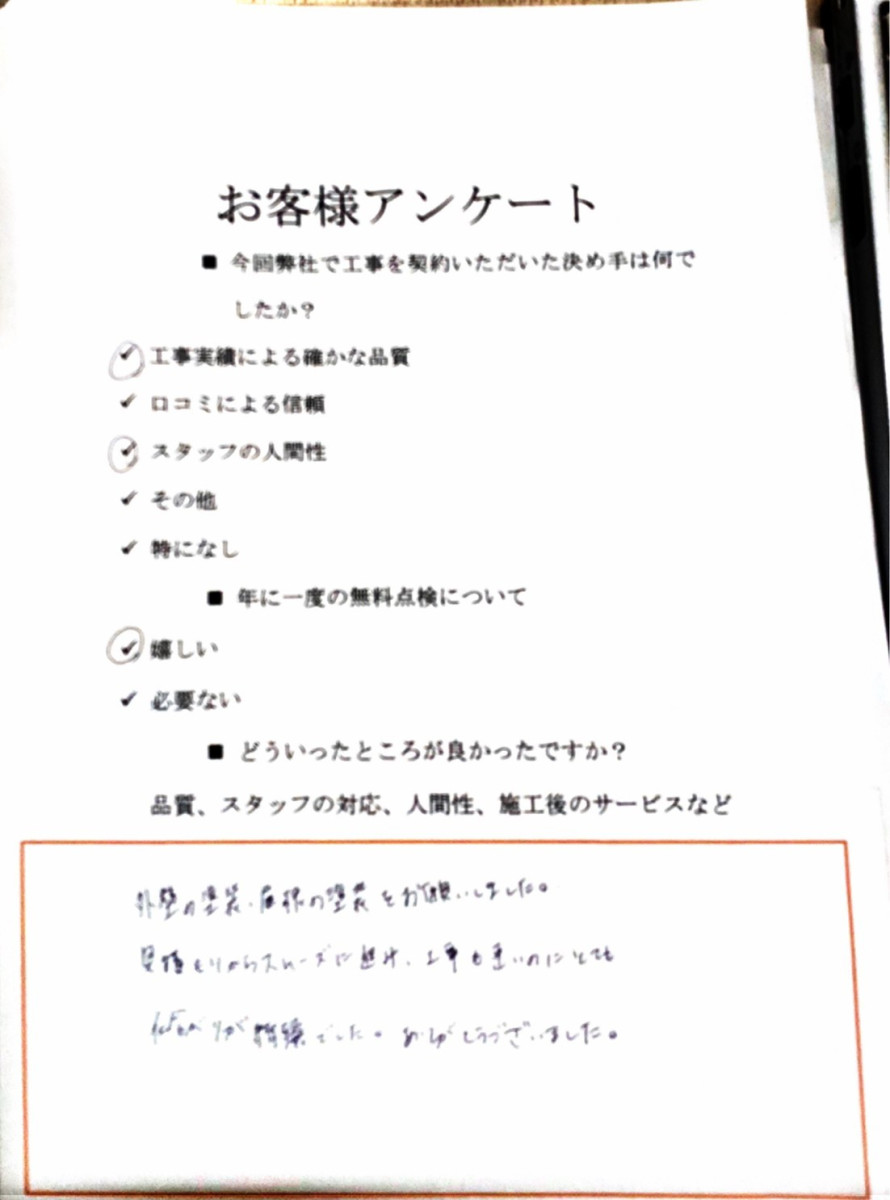 お客様アンケート
■ 今回弊社で工事を契約いただいた決め手は何で
したか？
✓ 工事実績による確かな品質
✓ 口コミによる信頼
✓ スタッフの人間性
✓ その他
✓ 特になし
■ 年に一度の無料点検について
✓ 嬉しい
✓ 必要ない
■ どういったところが良かったですか？
品質、スタッフの対応、人間性、施工後のサービスなど
外壁の塗装・屋根の塗装をお願いしました。
見積もりからスムーズに進み、工事も早いのにとても
仕上がりが綺麗でした。ありがとうございました。